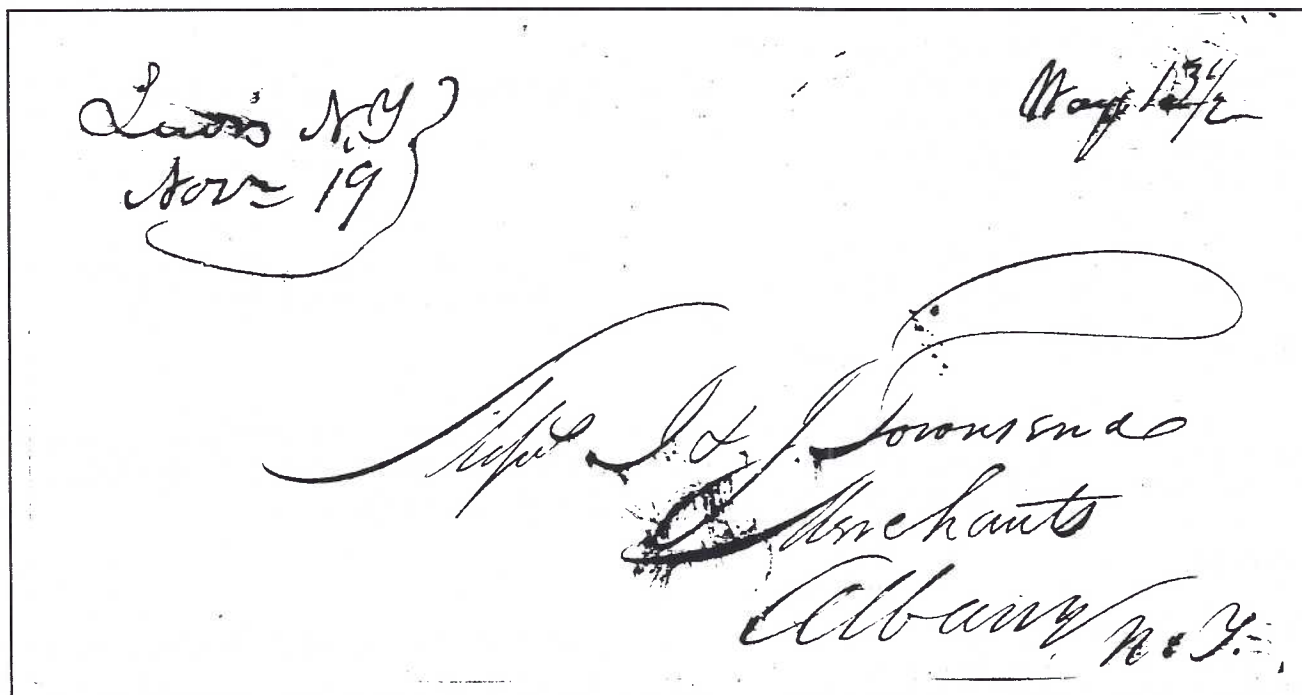 Lewis N.Y
Nov 19
Way
Messrs I. & J. Townsend
Merchants
Albany N. Y.